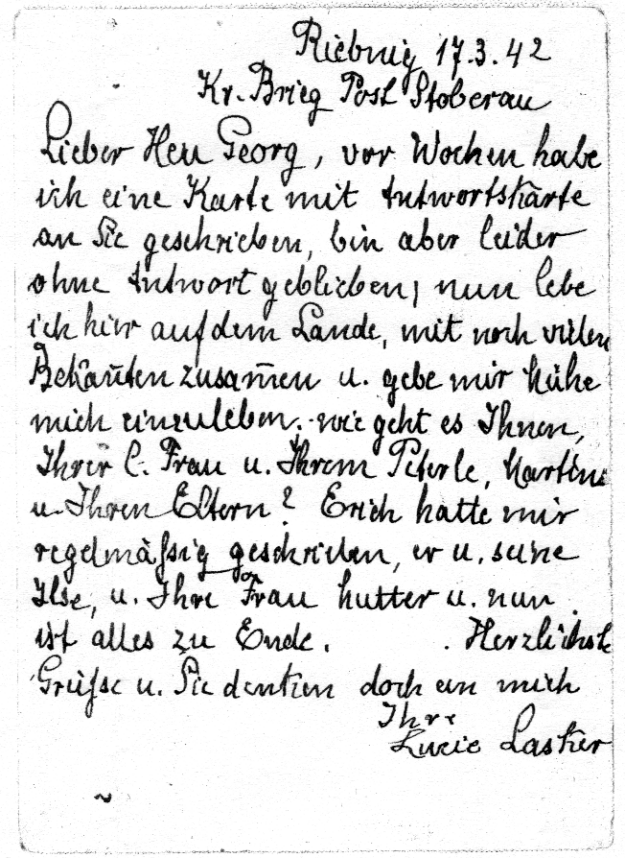 Riebnig 17.3.42
Kr. Brieg Post Stoberau
Lieber Herr Georg, vor Wochen habe
ich eine Karte mit Antwortskarte
an Sie geschrieben, bin aber leider
ohne Antwort geblieben, nun lebe
ich hier auf dem Lande, mit noch vielen
Bekan̄ten zusam̄en u. gebe mir Mühe
mich einzuleben. wie geht es Ihnen,
Ihrer l. Frau u. Ihrem Peterle, Martin
u. Ihren Eltern? Erich hatte mir
regelmäßig geschrieben, er u. seine
Ilse, u. Ihre Frau Mutter u. nun
ist alles zu Ende. . Herzlichste
Grüße u. Sie denken doch an mich
Ihre
Lucie Lasker